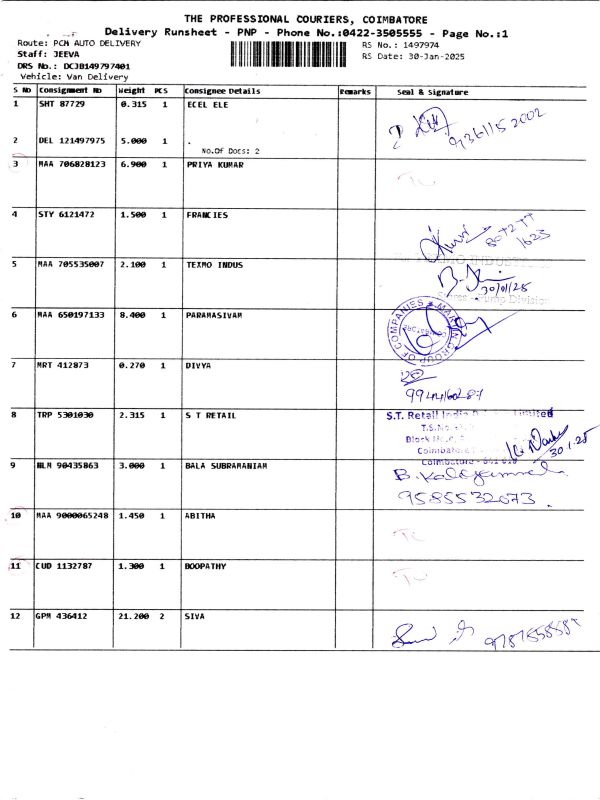 THE PROFESSIONAL COURIERS, COIMBATORE
Delivery Runsheet - PNP - Phone No.:0422-3505555 - Page No.:1
Route: PCM AUTO DELIVERY
RS No.: 1497974
Staff: JEEVA
RS Date: 30-Jan-2025
DRS No.: DCJB149797401
Vehicle: Van Delivery
S No Consignment No Weight PCS Consignee Details Remarks Seal & Signature
1 SHT 87729 0.315 1 ECEL ELE
2 DEL 121497975 5.000 1 .
No.Of Docs: 2
9361152002
3 MAA 706828123 6.900 1 PRIYA KUMAR
4 STY 6121472 1.500 1 FRANCIES
1623
5 MAA 705535007 2.100 1 TEXMO INDUS
30/01/25
Pump Division
6 MAA 650197133 8.400 1 PARAMASIVAM
GROUP OF COMPANIES
7 MRT 412873 0.270 1 DIVYA
8 TRP 5301030 2.315 1 S T RETAIL
S.T. Retail India Limited
T.S.No.
Block
Coimbatore
30.1.25
Coimbatore - 641 018
9 NLM 90435863 3.000 1 BALA SUBRAMANIAM
9585532073
10 MAA 9000065248 1.450 1 ABITHA
11 CUD 1132787 1.300 1 BOOPATHY
12 GPM 436412 21.200 2 SIVA